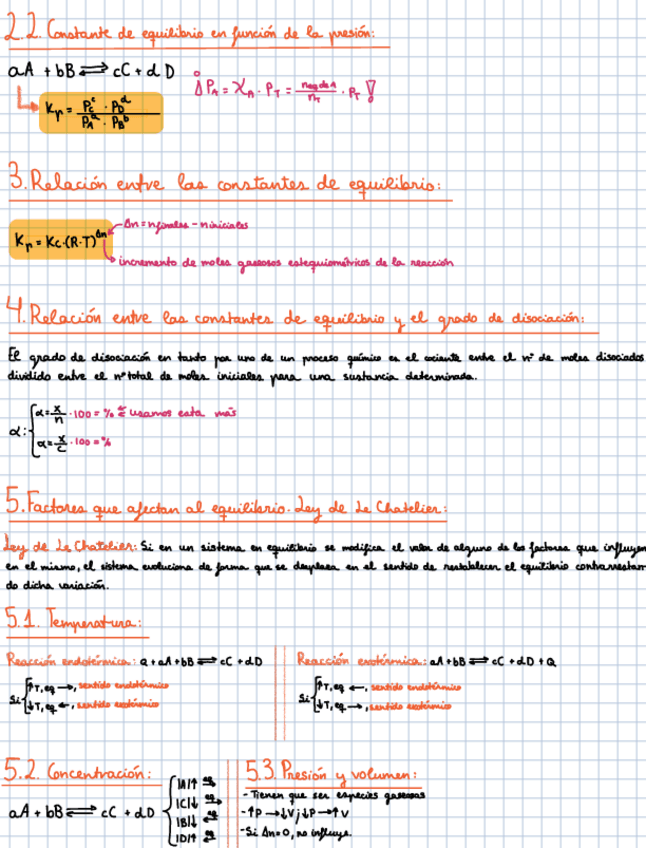 2.2. Constante de equilibrio en función de la presión:
aA + bB ⇌ cC + dD
¡ P_A = X_A · P_T = n eq de A / n_T · P_T !
Kp = P_C^c · P_D^d / P_A^a · P_B^b
3. Relación entre las constantes de equilibrio:
Kp = Kc·(R·T)^Δn
Δn = n finales - n iniciales
incremento de moles gaseosos estequiométricos de la reacción
4. Relación entre las constantes de equilibrio y el grado de disociación:
El grado de disociación en tanto por uno de un proceso químico es el cociente entre el nº de moles disociados
dividido entre el nº total de moles iniciales para una sustancia determinada.
α: { α = x/n · 100 = % usamos esta más
α = x/c · 100 = %
5. Factores que afectan al equilibrio. Ley de Le Chatelier:
Ley de Le Chatelier: Si en un sistema en equilibrio se modifica el valor de alguno de los factores que influyen
en el mismo, el sistema evoluciona de forma que se desplaza en el sentido de restablecer el equilibrio contrarrestan
do dicha variación.
5.1. Temperatura:
Reacción endotérmica: Q + aA + bB ⇌ cC + dD
Si { ↑T, eq →, sentido endotérmico
↓T, eq ←, sentido exotérmico
Reacción exotérmica: aA + bB ⇌ cC + dD + Q
Si { ↑T, eq ←, sentido endotérmico
↓T, eq →, sentido exotérmico
5.2. Concentración:
aA + bB ⇌ cC + dD
|A|↑ eq →
|C|↓ eq →
|B|↓ eq ←
|D|↑ eq ←
5.3. Presión y volumen:
- Tienen que ser especies gaseosas
- ↑P → ↓V; ↓P → ↑V
- Si Δn = 0, no influye.